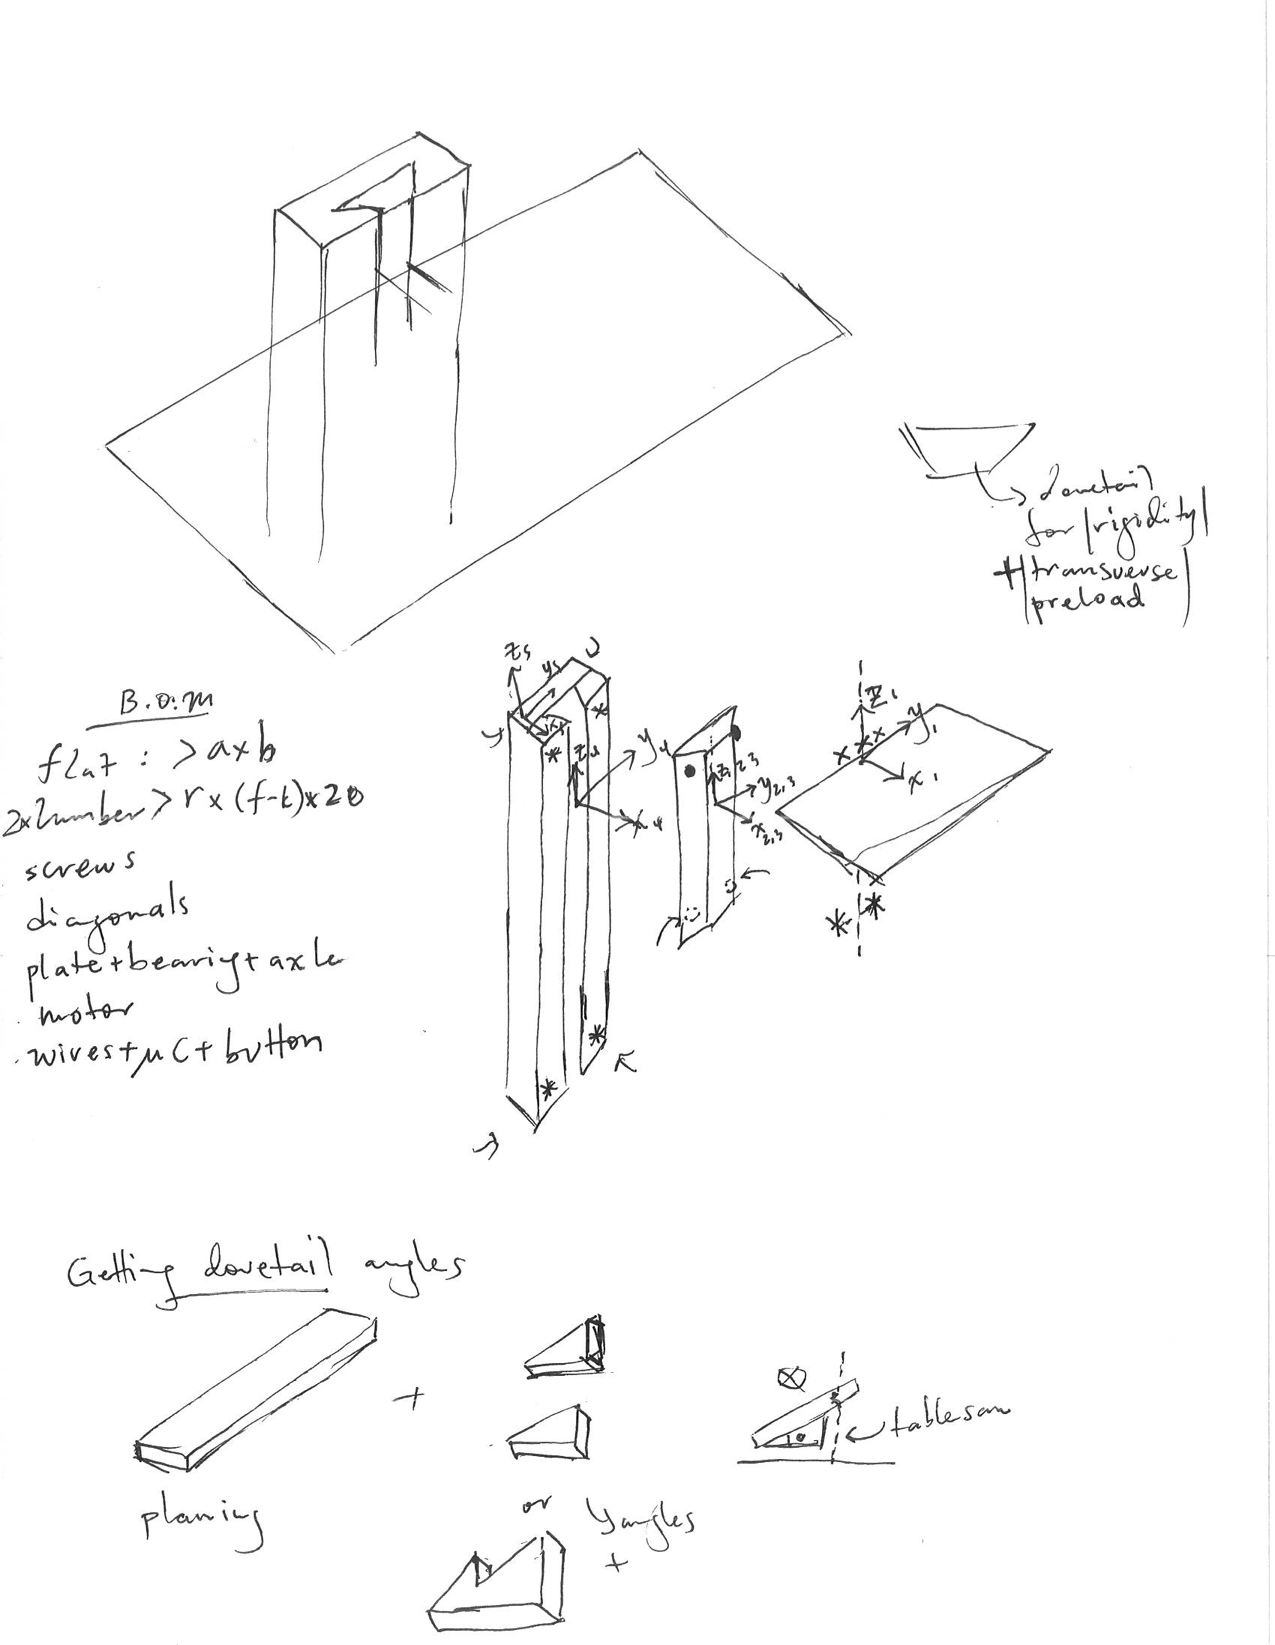 dovetail
for |rigidity|
+ |transverse|
|preload|
B.O.M
flat : > a x b
2x lumber > r x (f-t) x 20
screws
diagonals
plate + bearing + axle
motor
wires + μC + button
z5
y5
x5
z4
y4
x4
z2,3
y2,3
x2,3
z1
y1
x1
Getting dovetail angles
+
tablesaw
planing
or
angles
+